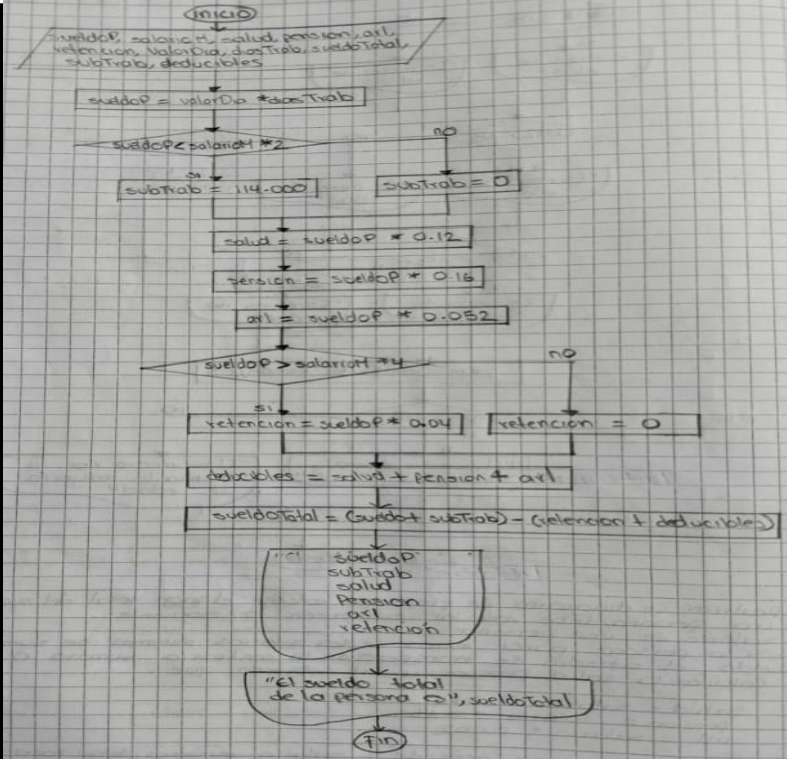 inicio
sueldoP, salarioM, salud, pension, arl,
retencion, valorDia, diasTrab, sueldoTotal,
subTrab, deducibles
sueldoP = valorDia * diasTrab
sueldoP < salarioM * 2
no
si
subTrab = 114.000
subTrab = 0
salud = sueldoP * 0.12
pension = sueldoP * 0.16
arl = sueldoP * 0.052
sueldoP > salarioM * 4
no
si
retencion = sueldoP * 0.04
retencion = 0
deducibles = salud + pension + arl
sueldoTotal = (sueldo + subTrab) - (retencion + deducibles)
sueldoP
subTrab
salud
Pension
arl
retencion
"El sueldo total
de la persona es", sueldoTotal
Fin